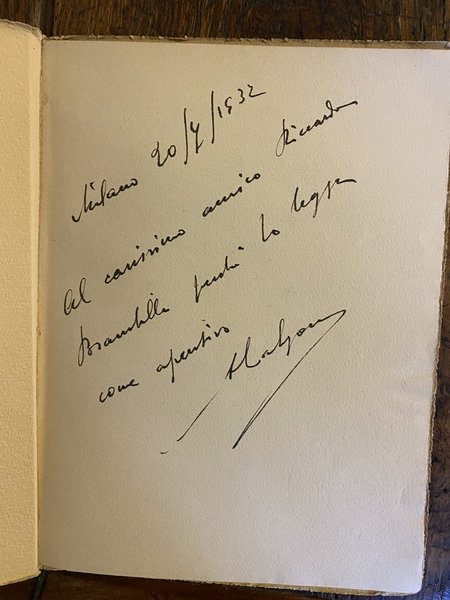 Milano 20/4/1932
Al carissimo amico Riccardo
Brambilla perché lo legga
come aperitivo